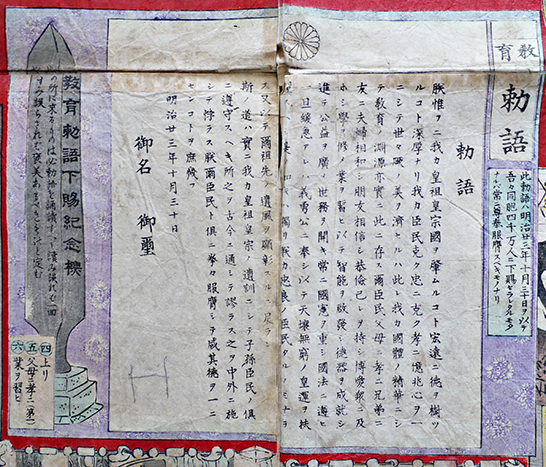 教育
勅語
此勅語ハ明治廿三年十月三十日ヲ以テ
吾々同胞四千萬人ニ下賜セラレタルモノ
常ニ尊奉服膺スベキモノナリ
勅語
朕惟フニ我カ皇祖皇宗國ヲ肇ムルコト宏遠ニ德ヲ樹ツ
ルコト深厚ナリ我カ臣民克ク忠ニ克ク孝ニ億兆心ヲ一
ニシテ世々厥ノ美ヲ濟セルハ此レ我カ國體ノ精華ニシ
テ教育ノ淵源亦實ニ此ニ存ス爾臣民父母ニ孝ニ兄弟ニ
友ニ夫婦相和シ朋友相信シ恭儉己レヲ持シ博愛衆ニ及
ホシ學ヲ修メ業ヲ習ヒ以テ智能ヲ啟發シ德器ヲ成就シ
進テ公益ヲ廣メ世務ヲ開キ常ニ國憲ヲ重シ國法ニ遵ヒ
一旦緩急アレハ義勇公ニ奉シ以テ天壤無窮ノ皇運ヲ扶
如キハ獨リ朕カ忠良ノ臣民タルノミナラ
ス又以テ爾祖先ノ遺風ヲ顯彰スルニ足ラン
斯ノ道ハ實ニ我カ皇祖皇宗ノ遺訓ニシテ子孫臣民ノ倶
ニ遵守スヘキ所之ヲ古今ニ通シテ謬ラス之ヲ中外ニ施
シテ悖ラス朕爾臣民ト倶ニ拳々服膺シテ咸其德ヲ一ニ
センコトヲ庶幾フ
明治廿三年十月三十日
御名 御璽
教育勅語下賜紀念標
の所に來るものは必勅語を捧讀すべし讀み誤れば一回
休み誤らざれば褒美あるべきものと定む
四 上リ
五 父母ニ孝ニ(第一)
六 業ヲ習ヒ